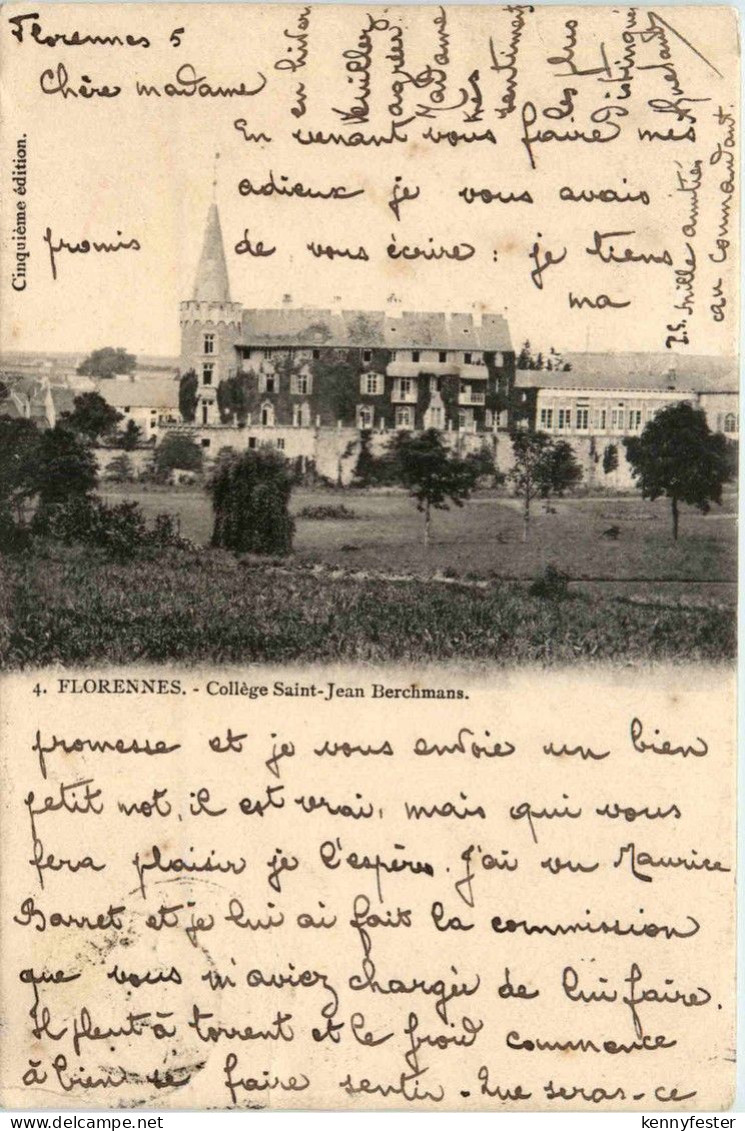 Florennes 5
Chère madame
En venant vous faire mes
adieux je vous avais
promis de vous écrire : je tiens
ma
Cinquième édition.
4. FLORENNES. - Collège Saint-Jean Berchmans.
promesse et je vous envoie un bien
petit mot, il est vrai, mais qui vous
fera plaisir je l'espère. J'ai vu Maurice
Barret et je lui ai fait la commission
que vous m'aviez chargée de lui faire.
Il pleut à torrent et le froid commence
à bien se faire sentir. Que seras-ce
en hiver
Veuillez
agréer
Madame
mes
sentiments
les plus
distingués
P.S. mille amitiés
au Commandant.
kennyfester